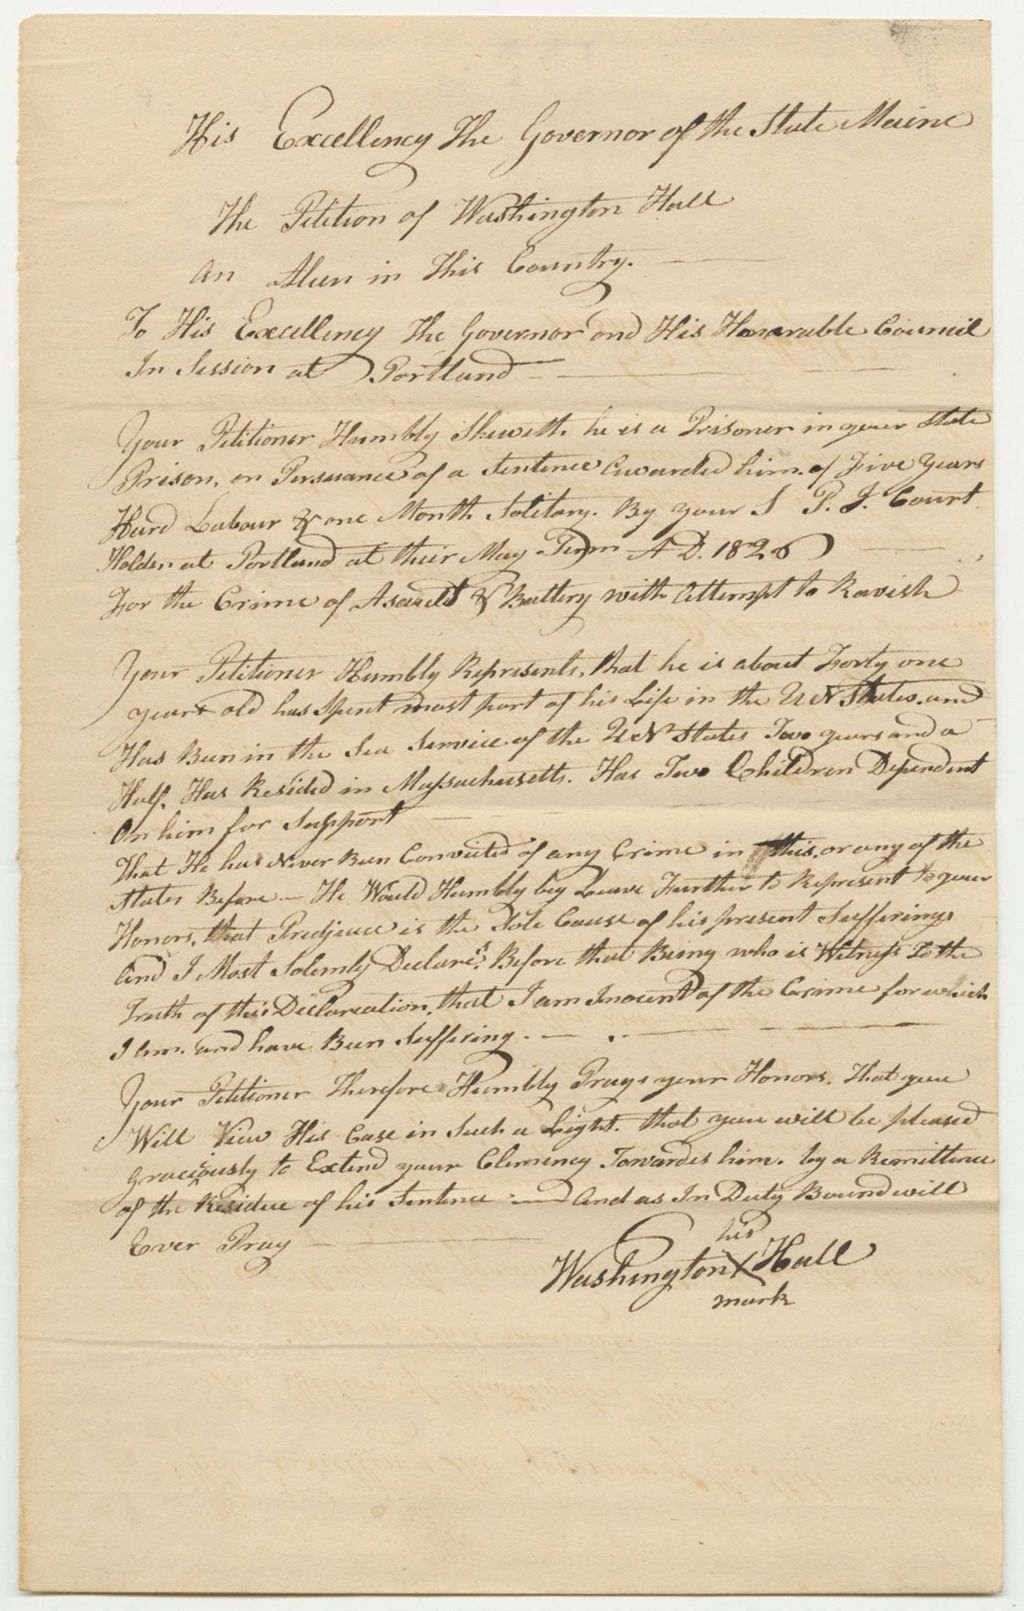 His Excellency The Governor of the State Maine
The Petition of Washington Hall
An Alien in This Country.
To His Excellency The Governor and His Honarable Council
In Session at Portland
Your Petitioner Humbly Sheweth he is a Prisoner in your State
Prison, on Persuance of a Sentence Awarded him. of Five Years
Hard Labour & one Month Solitary. By your S P. J. Court
Holden at Portland at their May Term A D. 1826
For the Crime of Asault & Battery with Attempt to Ravish
Your Petitioner Humbly Represents, that he is about Forty one
years old has Spent most part of his Life in the UN States. and
Has Been in the Sea Service of the UN States Two years and a
Half. Has Resided in Massachusetts. Has Two Children Dependent
On him for Support
That He has Never Been Convicted of any Crime in this, or any of the
States Before - He Would Humbly beg Leave Further to Represent to your
Honors, that Predjuce is the Sole Cause of his present Sufferings
And I Most Solemly Declare Before that Being who is Witness To the
Truth of this Declareation, that I am Inocent of the Crame for which
I am. and have Been Suffering.
Your Petitioner Therefore Humbly Prays your Honors. That you
Will View His Case in Such a Light. that you will be pleased
Graciously to Extend your Clemency Towardes him. by a Remittence
of the Residue of his Sentence - And as In Duty Bound will
Ever Pray
his
Washington X Hall
mark